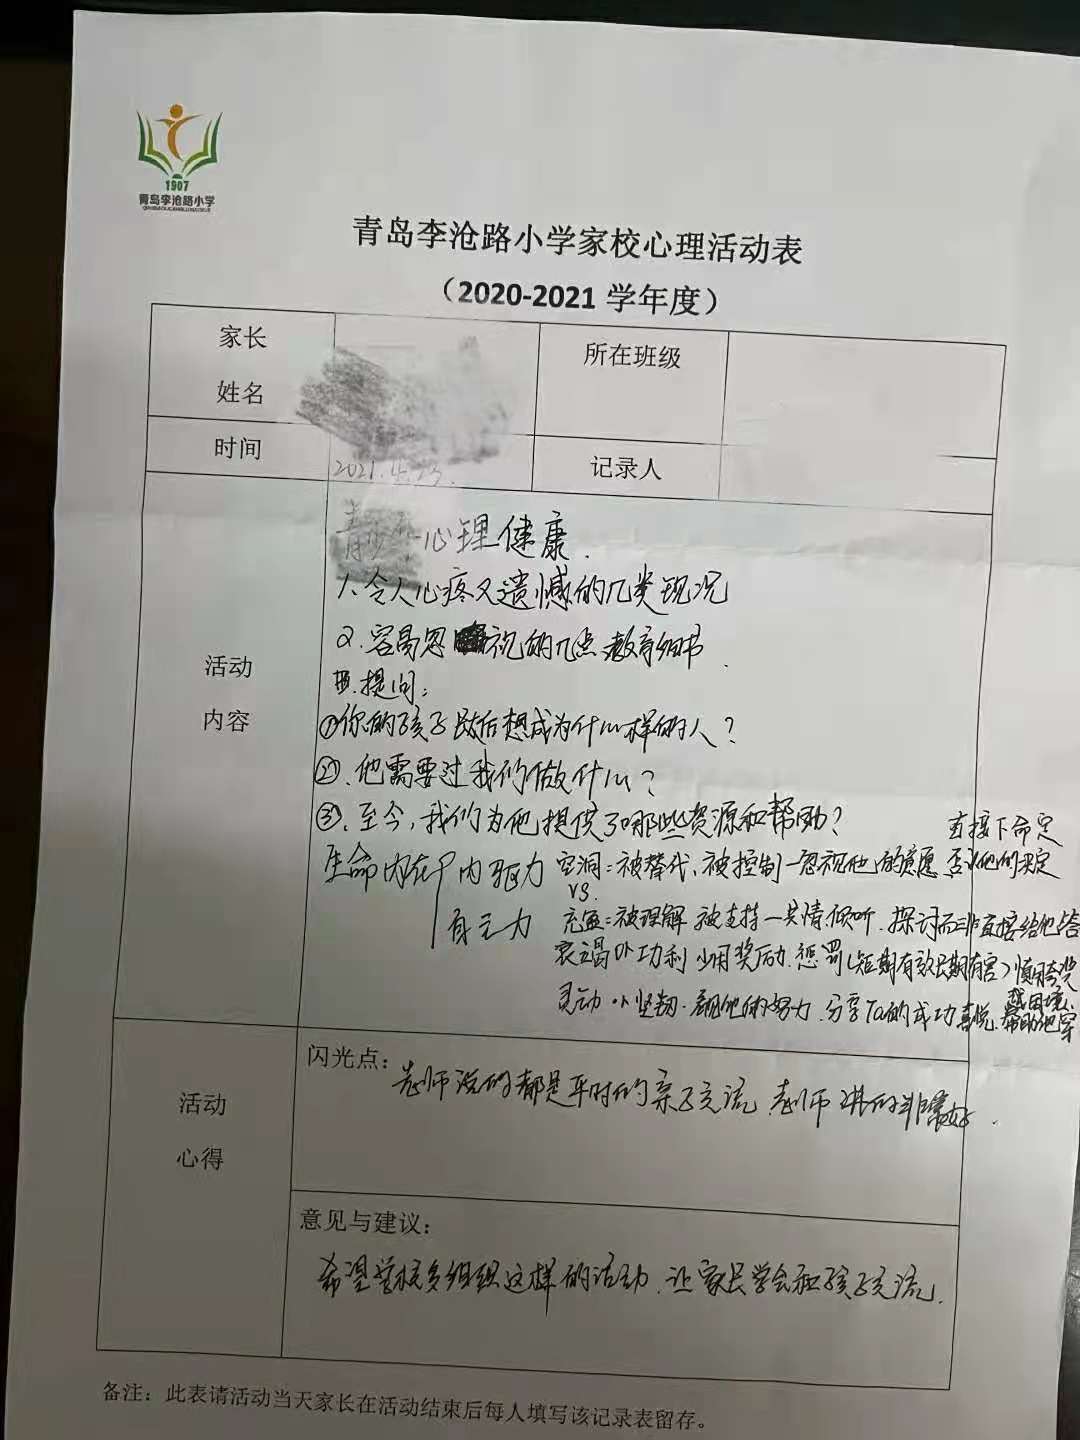 1907
青岛李沧路小学
青岛李沧路小学家校心理活动表
（2020-2021 学年度）
家长
姓名
所在班级
时间
2021.4.23.
记录人
活动
内容
青少年心理健康.
1.令人心疼又遗憾的几类现况
2.容易忽视的几点教育细节.
提问:
①你的孩子以后想成为什么样的人?
②.他需要过我们做什么?
③.至今,我们为他提供了哪些资源和帮助?
生命内在 内驱力
自主力
空洞=被替代、被控制—忽视他的意愿 直接下命定 否认他们决定
VS.
充盈=被理解 被支持—共情倾听.探讨而非直接给他答
功利 少用奖励.惩罚(短期有效长期有害)慎用夸奖
灵动 坚韧. 他的努力.分享Ta的成功喜悦.帮助他穿
越困境.
活动
心得
闪光点:
老师说的都是平时的亲子交流.老师讲的非常好.
意见与建议:
希望学校多组织这样的活动.让家长学会和孩子交流.
备注：此表请活动当天家长在活动结束后每人填写该记录表留存。